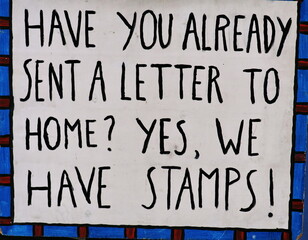 HAVE YOU ALREADY
SENT A LETTER TO
HOME? YES, WE
HAVE STAMPS!